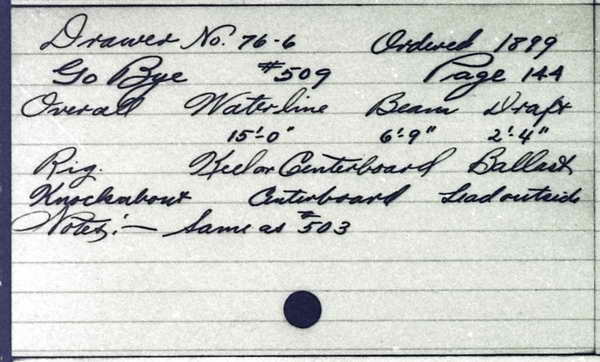 Drawer No. 76-6 Ordered 1899
Go Bye #509 Page 144
Overall Waterline Beam Draft
15'-0" 6'-9" 2'-4"
Rig. Keel or Centerboard Ballast
Knockabout Centerboard Lead outside
Notes:— Same as #503